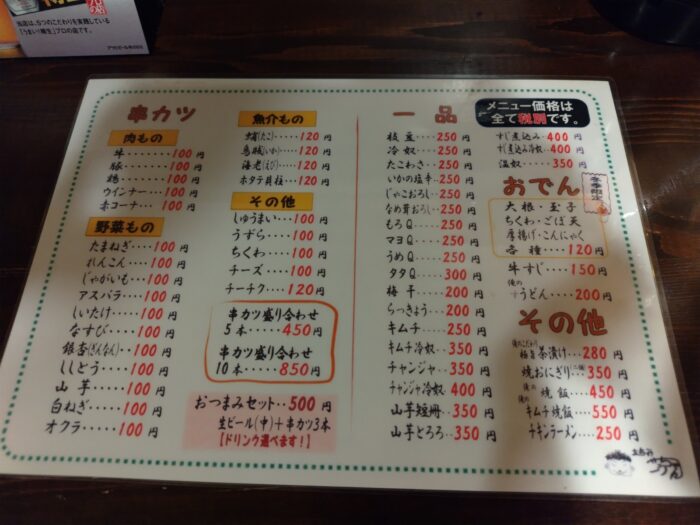 当店は、5つのこだわりを実践している
「うまい!樽生」プロの店です。
串カツ
肉もの
牛・・・・・100円
豚・・・・・100円
鶏・・・・・100円
ウインナー・・・・100円
赤コーナ・・・・100円
野菜もの
たまねぎ・・・100円
れんこん・・・100円
じゃがいも・・・100円
アスパラ・・・・100円
しいたけ・・・・100円
なすび・・・・・100円
銀杏(ぎんなん)・・100円
ししとう・・・・100円
山芋・・・・・100円
白ねぎ・・・・・100円
オクラ・・・・・100円
魚介もの
蛸(たこ)・・・・120円
烏賊(いか)・・・120円
海老(えび)・・・120円
ホタテ貝柱・・・120円
その他
しゅうまい・・・100円
うずら・・・・・100円
ちくわ・・・・・100円
チーズ・・・・・100円
チーチク・・・・120円
串カツ盛り合わせ
5本・・・・・450円
串カツ盛り合わせ
10本・・・・・850円
おつまみセット・・500円
生ビール(中)+串カツ3本
【ドリンク選べます!】
一品
メニュー価格は
全て税別です。
枝豆・・・・250円
冷奴・・・・250円
たこわさ・・・・250円
いかの塩辛・・・250円
じゃこおろし・・250円
なめ茸おろし・・250円
もろQ・・・・250円
マヨQ・・・・250円
うめQ・・・・250円
タタQ・・・・300円
梅干・・・・200円
らっきょう・・・200円
キムチ・・・・350円
キムチ冷奴・・・350円
チャンジャ・・・350円
チャンジャ冷奴・・400円
山芋短冊・・・350円
山芋とろろ・・・350円
すじ煮込み・・400円
すじ煮込み冷奴・・400円
温奴・・・・350円
おでん
冬季限定
大根・玉子
ちくわ・ごぼ天
厚揚げ・こんにゃく
各種・・・・120円
牛すじ・・・・150円
俺のうどん・・・200円
その他
俺のこだわり
極旨茶漬け・・・280円
焼おにぎり・・350円
俺の焼飯・・・450円
俺のキムチ焼飯・・・550円
チキンラーメン・・・250円